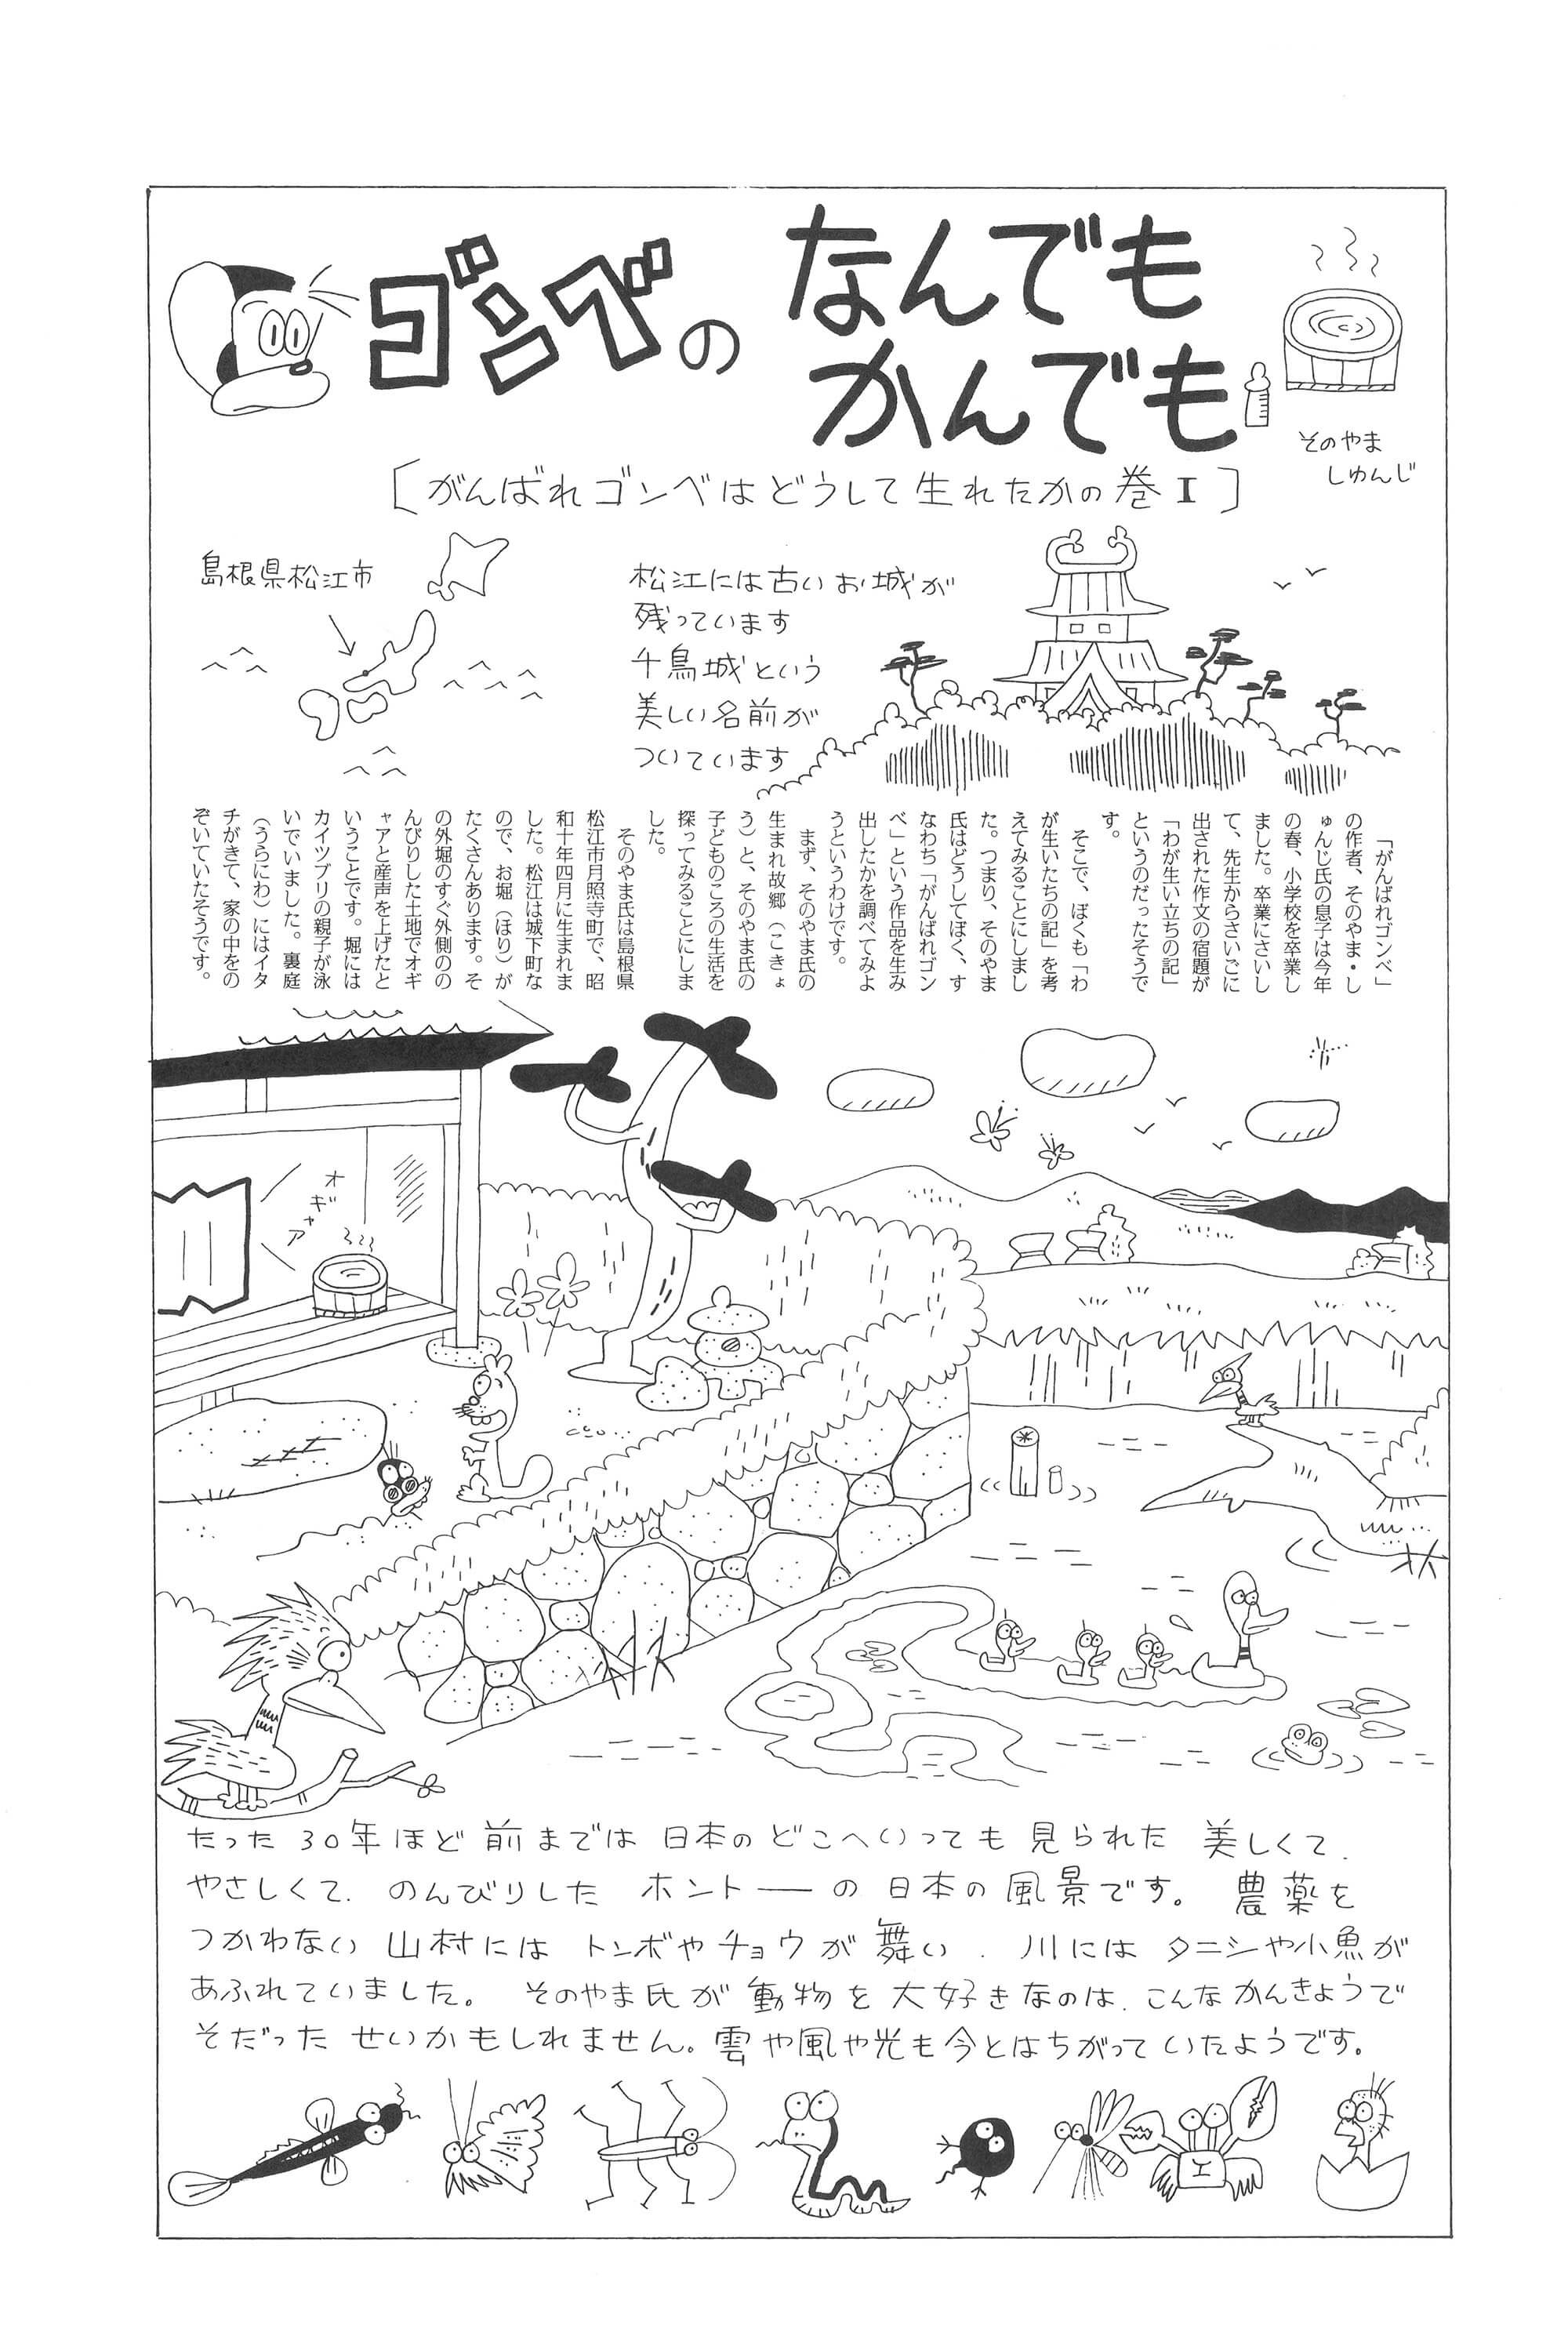 ゴンベの
なんでも
かんでも
そのやま
しゅんじ
[がんばれゴンベはどうして生れたかの巻I]
島根県松江市
松江には古いお城が
残っています
千鳥城という
美しい名前が
ついています
「がんばれゴンベ」
の作者、そのやま・し
ゅんじ氏の息子は今年
の春、小学校を卒業し
ました。卒業にさいし
て、先生からさいごに
出された作文の宿題が
「わが生い立ちの記」
というのだったそうで
す。
そこで、ぼくも「わ
が生いたちの記」を考
えてみることにしまし
た。つまり、そのやま
氏はどうしてぼく、す
なわち「がんばれゴン
ベ」という作品を生み
出したかを調べてみよ
うというわけです。
まず、そのやま氏の
生まれ故郷（こきょ
う）と、そのやま氏の
子どものころの生活を
探ってみることにしま
した。
そのやま氏は島根県
松江市月照寺町で、昭
和十年四月に生まれま
した。松江は城下町な
ので、お堀（ほり）が
たくさんあります。そ
の外堀のすぐ外側のの
んびりした土地でオギ
ャアと産声を上げたと
いうことです。堀には
カイツブリの親子が泳
いでいました。裏庭
（うらにわ）にはイタ
チがきて、家の中をの
ぞいていたそうです。
オギャア
たった30年ほど前までは日本のどこへいっても見られた美しくて、
やさしくて、のんびりしたホントーの日本の風景です。農薬を
つかわない山村にはトンボやチョウが舞い、川にはタニシや小魚が
あふれていました。そのやま氏が動物を大好きなのは、こんなかんきょうで
そだったせいかもしれません。雲や風や光も今とはちがっていたようです。